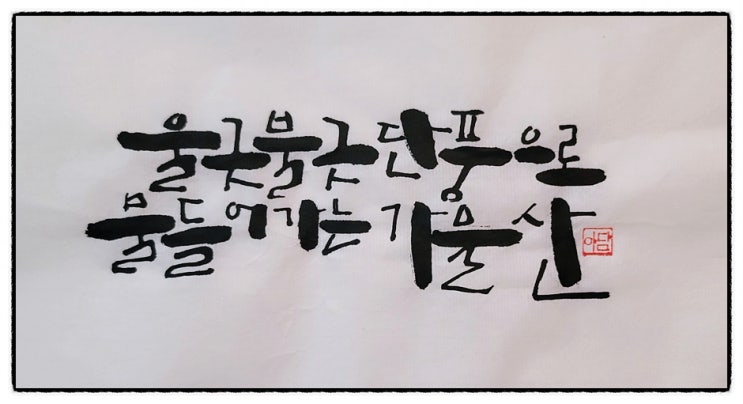 울긋붉긋 단풍으로
물들어가는 가을 산
아담